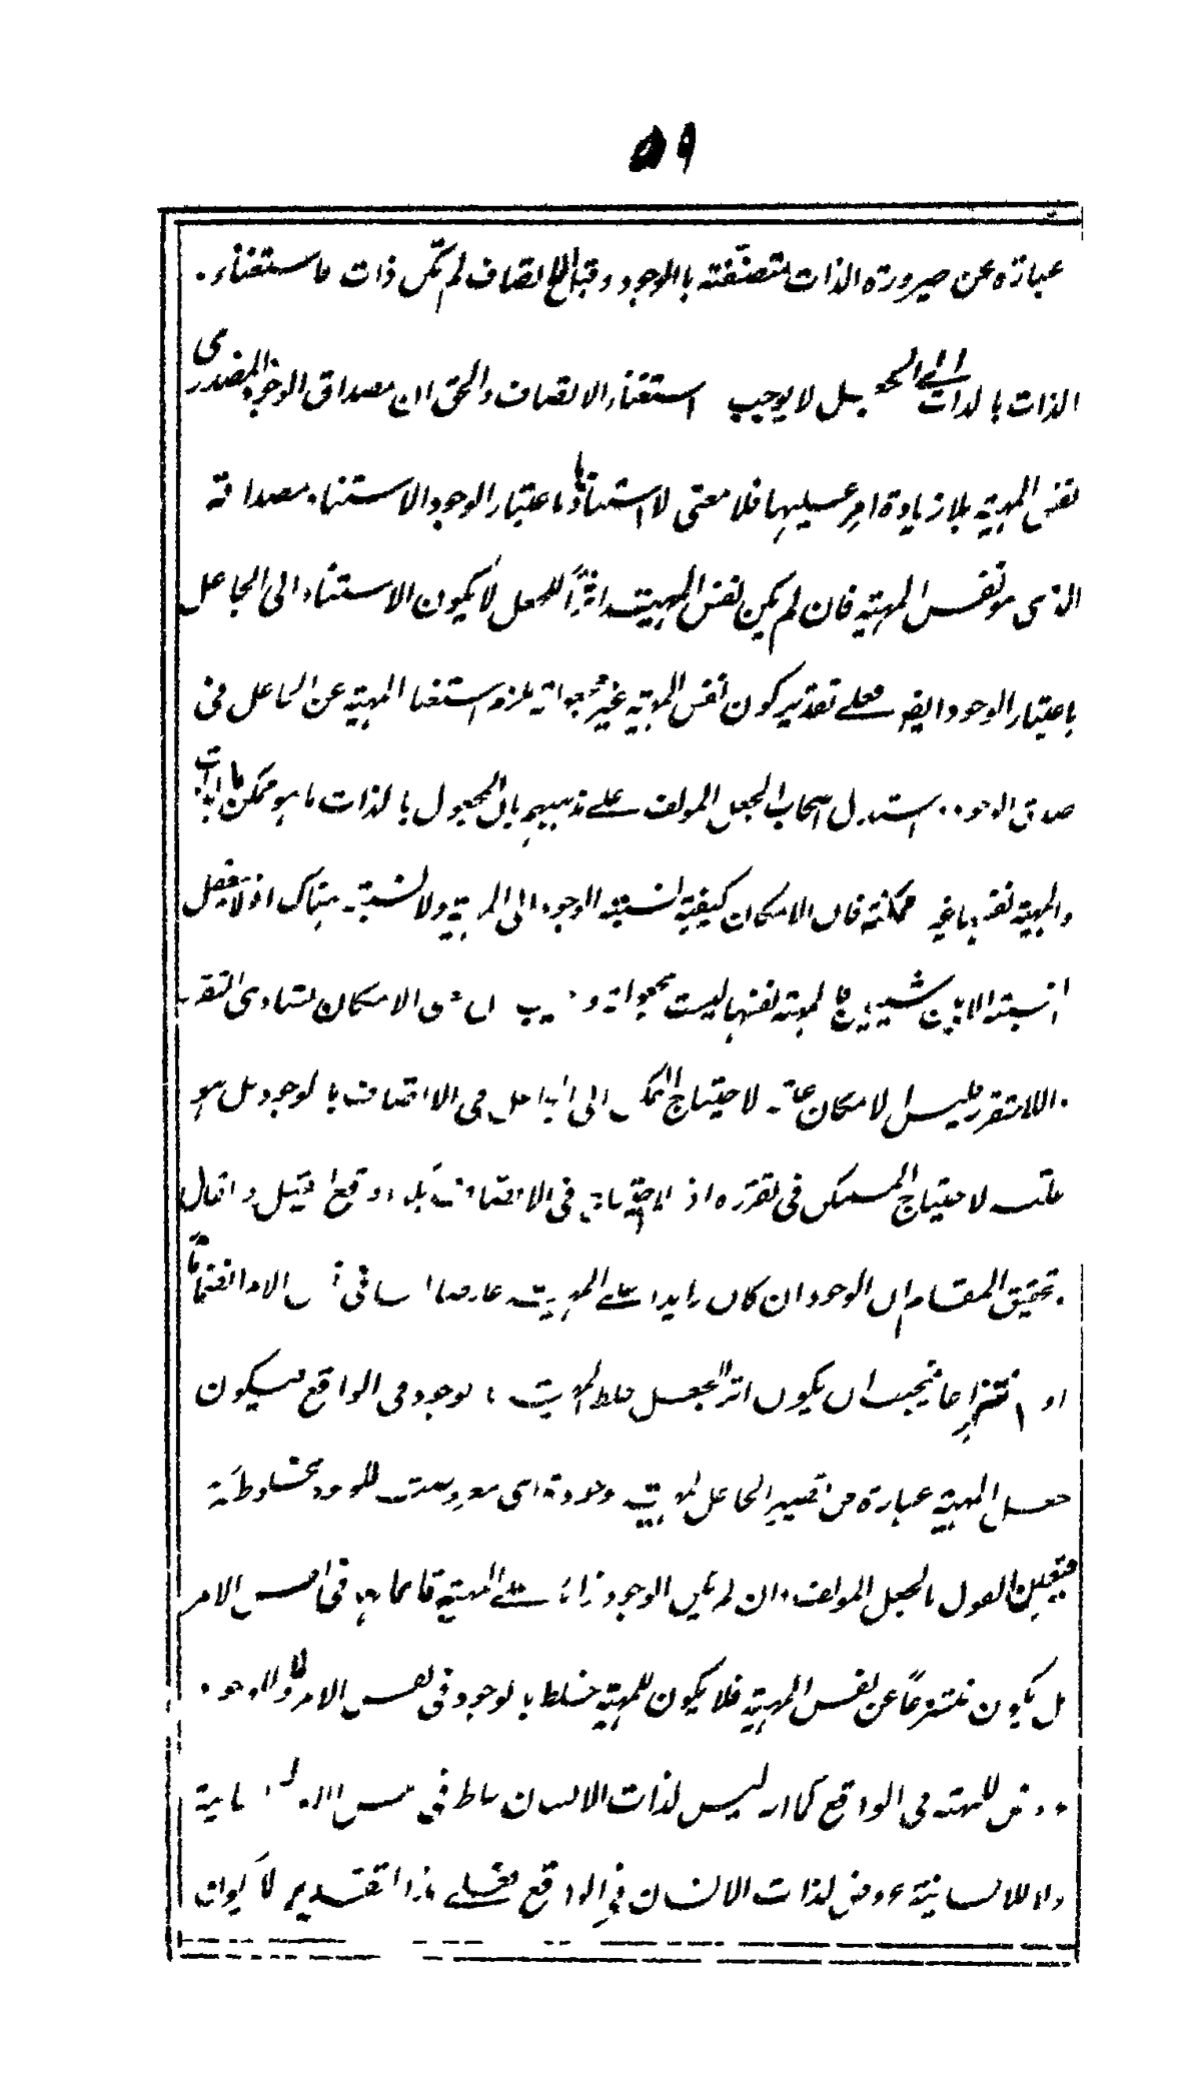 ٥٩
عبارة عن صيرورة الذات متصفة بالوجود وقبل الاتصاف لم تكن ذات فاستغناء
الذات بالذات الى الجعل لا يوجب استغناء الاتصاف والحق ان مصداق الوجود المصدرى
نفس المهية بلا زيادة امر عليها فلا معنى لاستنادها باعتبار الوجود الا استناد مصداقه
الذى هو نفس المهية فان لم يكن نفس المهية اثراً للجعل لا يكون الاستناد الى الجاعل
باعتبار الوجود ايضا فعلى تقدير كون نفس المهية غير مجعولة يلزم استغناء المهية عن الجاعل فى
صدق الوجود استدل اصحاب الجعل المولف على مذهبهم بان المجعول بالذات ما هو ممكن بالذات
والمهية نفسها غير ممكنة فان الامكان كيفية نسبة الوجود الى المهية ولا نسبة هناك اذ لا يعقل
النسبة الا بين شيئين فالمهية نفسها ليست مجعولة و الامكان تساوى التقرر
اللاتقرر فليس الامكان علة لاحتياج الممكن الى الجاعل فى الاتصاف بالوجود بل هو
علة لاحتياج الممكن فى تقرره اذ الاحتياج فى الاتصاف وقع القيل والقال
تحقيق المقام ان الوجود ان كان زايدا على المهية عارضا لها فى نفس الامر انضماما
او انتزاعا فيجب ان يكون اثر الجعل خلط المهية بالوجود فى الواقع فيكون
جعل المهية عبارة عن تصيير الجاعل المهية موجودة اى معروضة للوجود مخلوطة
فتعين القول بالجعل المولف وان لم يكن الوجود زائدا على المهية قائما بها فى نفس الامر
بل يكون منتزعاً عن نفس المهية فلا يكون للمهية خلط بالوجود فى نفس الامر ولا للوجود
عروض للمهية فى الواقع كما انه ليس لذات الانسان خلط فى نفس الامر بالانسانية
ولا للانسانية عروض لذات الانسان فى الواقع فعلى هذا التقدير لا يكون